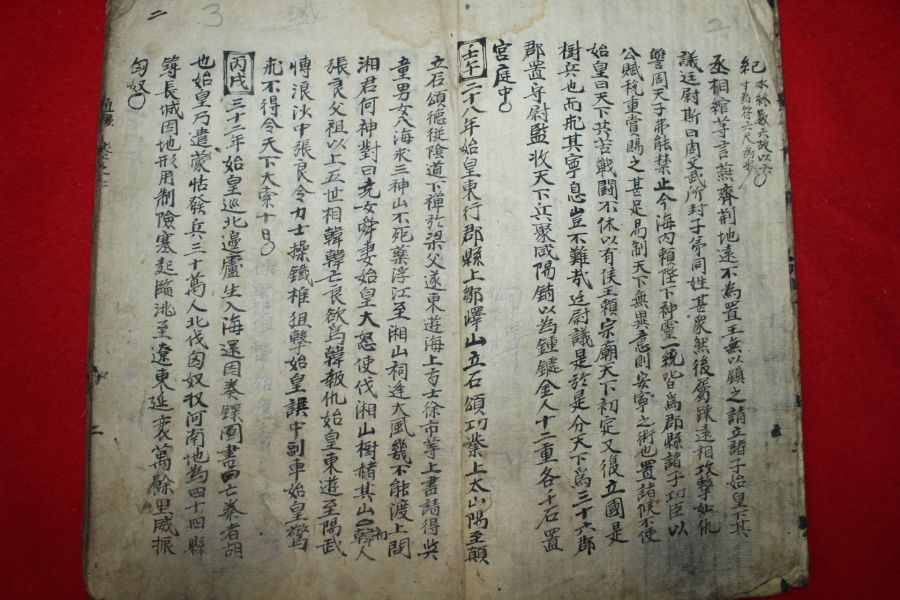 紀 水終數六故以六
寸為符六尺為步
丞相綰等言燕齊荆地遠不為置王無以鎮之請立諸子始皇下其
議廷尉斯曰周文武所封子弟同姓甚衆然後屬疎遠相攻擊如仇
讐周天子弗能禁止今海內賴陛下神靈一統皆爲郡縣諸子功臣以
公賦稅重賞賜之甚足易制天下無異意則安寧之術也置諸侯不便
始皇曰天下共苦戰鬪不休以有侯王賴宗廟天下初定又復立國是
樹兵也而求其寧息豈不難哉廷尉議是於是分天下爲三十六郡
郡置守尉監收天下兵聚咸陽銷以爲鍾鐻金人十二重各千石置
宮庭中
壬午 二十八年始皇東行郡縣上鄒嶧山立石頌功業上太山陽至顚
立石頌德從陰道下禪於梁父遂東遊海上方士徐市等上書請得與
童男女入海求三神山不死藥浮江至湘山祠逢大風幾不能渡上問
湘君何神對曰堯女舜妻始皇大怒使伐湘山樹赭其山 初韓人
張良父祖以上五世相韓韓亡良欲爲韓報仇始皇東遊至陽武
博浪沙中張良令力士操鐵椎狙擊始皇誤中副車始皇驚
求不得令天下大索十日
丙戌 三十二年始皇巡北邊盧生入海還因奏錄圖書曰亡秦者胡
也始皇乃遣蒙恬發兵三十萬人北伐匈奴收河南地爲四十四縣
築長城因地形用制險塞起臨洮至遼東延袤萬餘里威振
匈奴
二
二
3
2